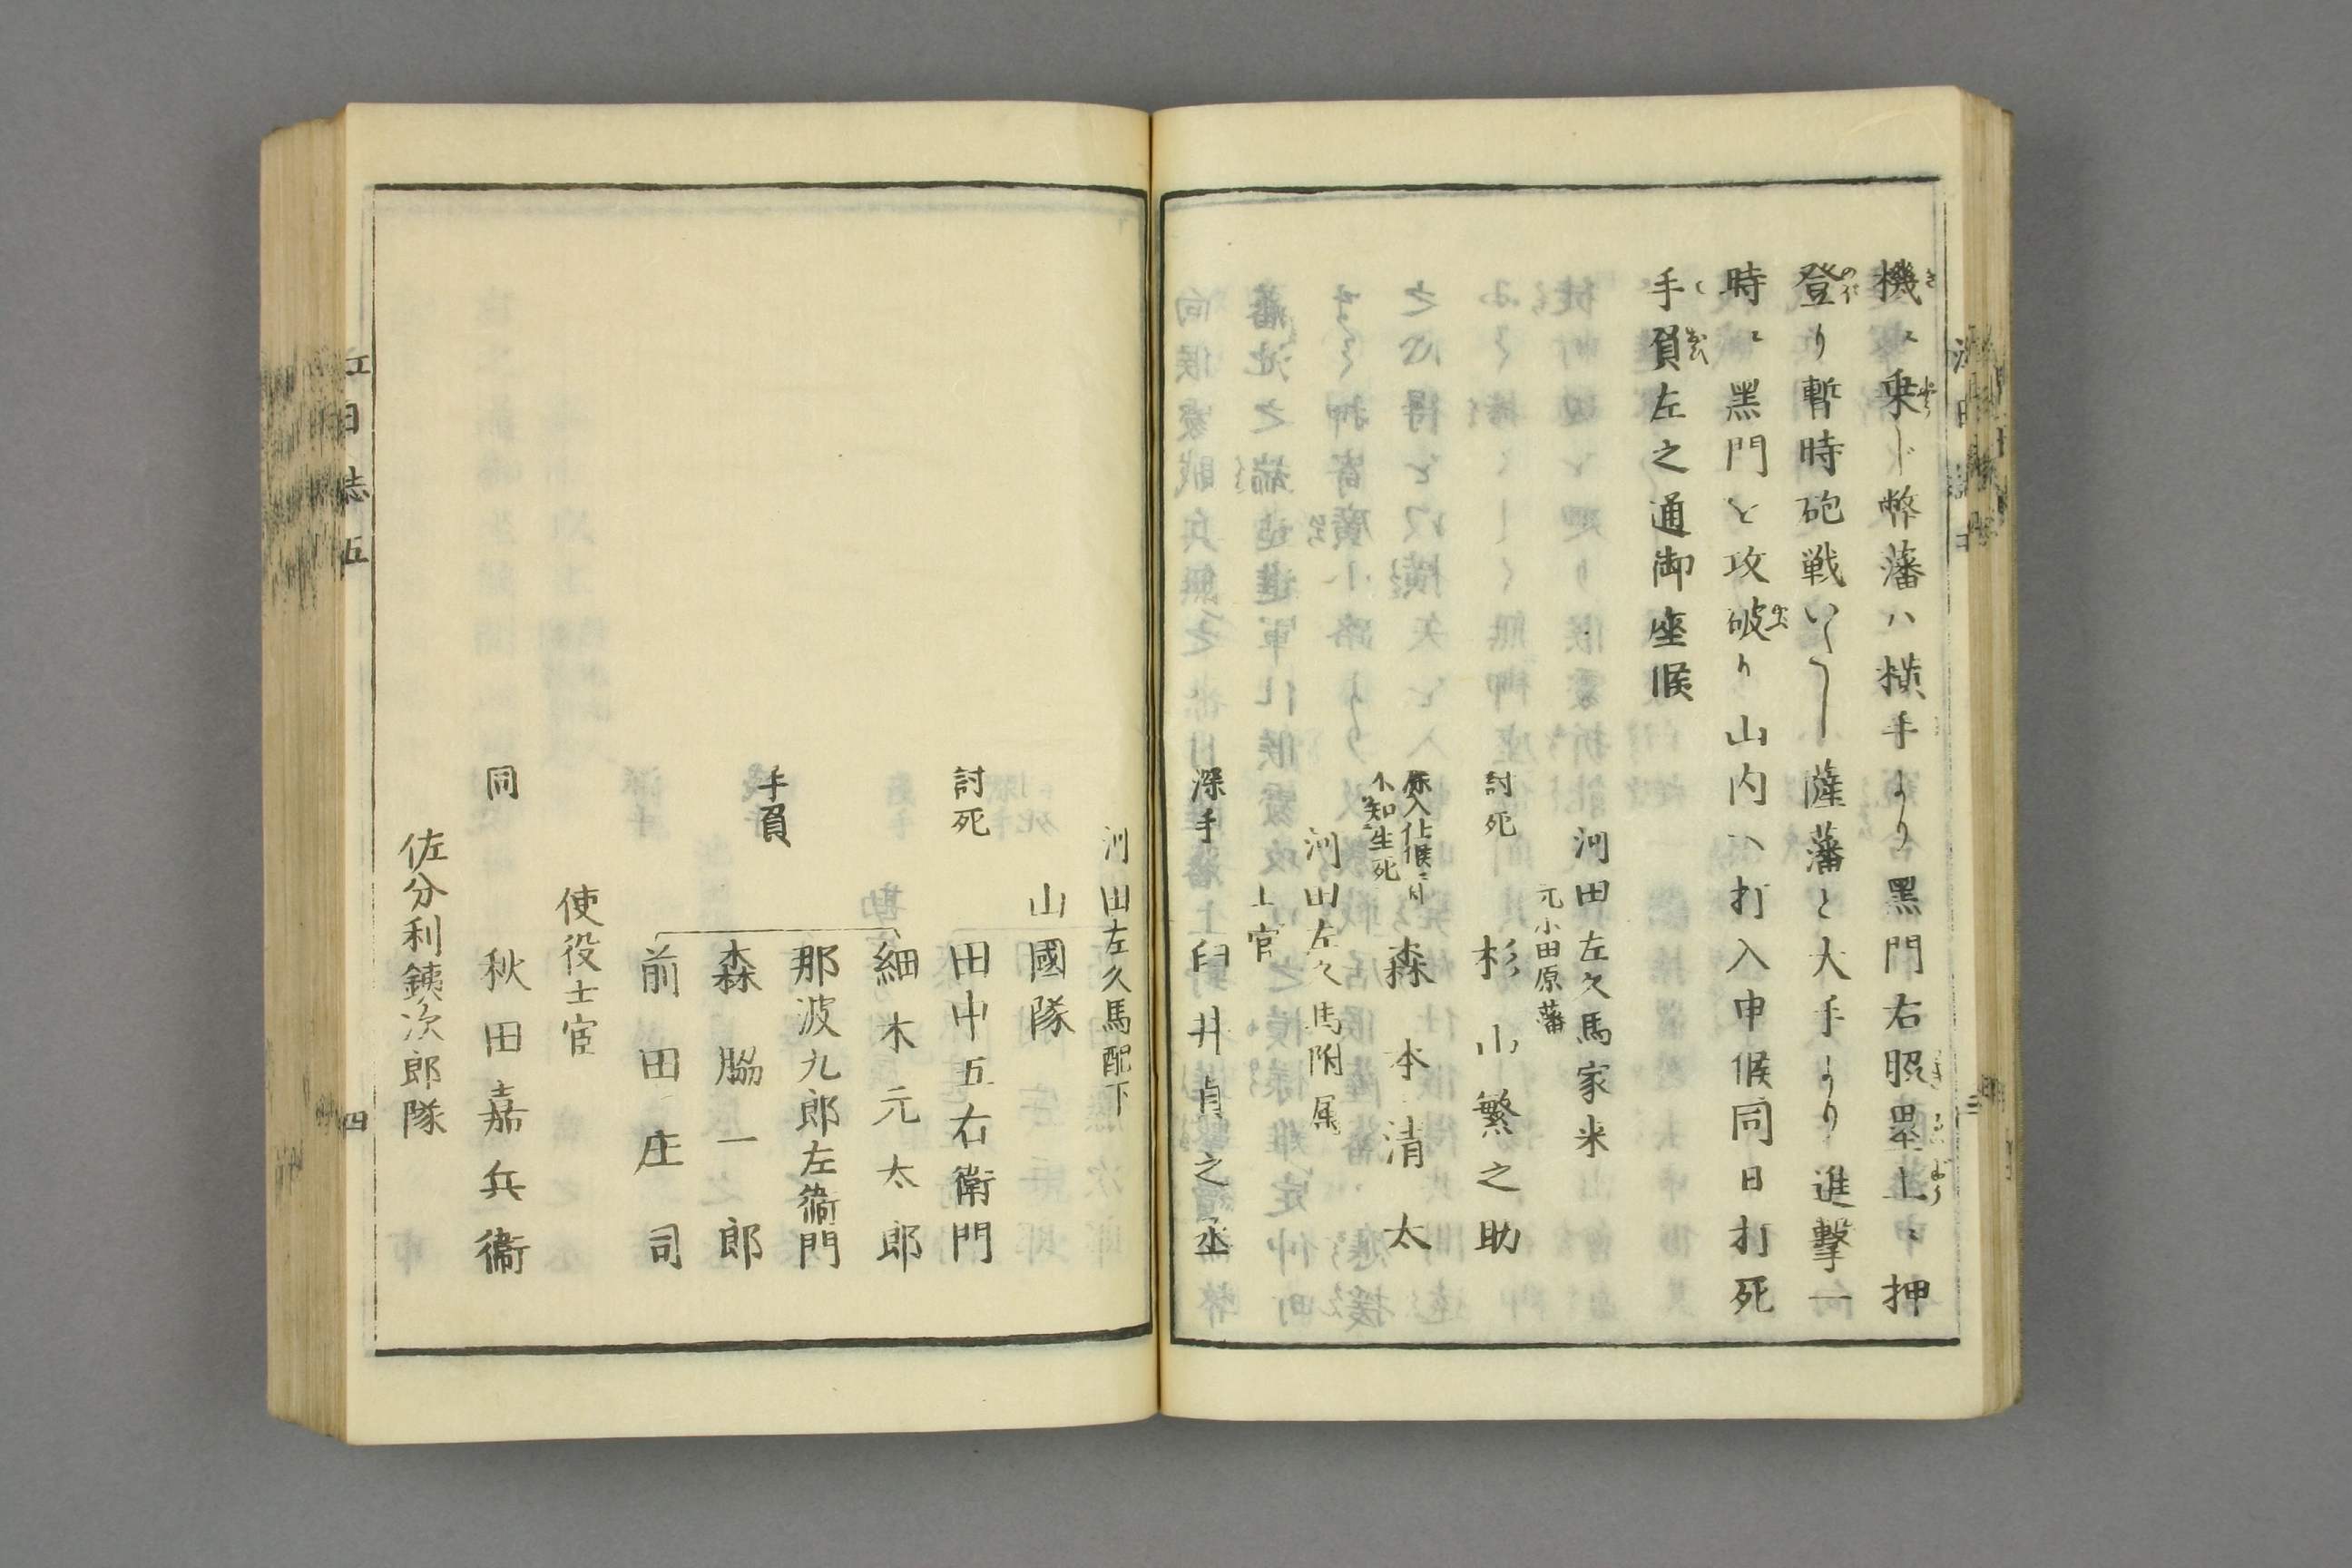 機ニ乗ジ弊藩ハ横手より黒門右照壘上ニ押
登り暫時砲戦いたし薩藩と大手より進撃一
時ニ黒門を攻破り山内ヘ打入申候同日打死
手負左之通御座候
河田左久馬家来
元小田原藩
討死 杉山繁之助
不知生死 森本清太
河田左久馬附属
上官
深手 臼井貞之丞
河田左久馬配下
山國隊
討死 田中五右衛門
細木元太郎
手負 那波九郎左衞門
森脇一郎
前田庄司
使役士官
同 秋田嘉兵衞
佐分利銕次郎隊
江日誌五
四